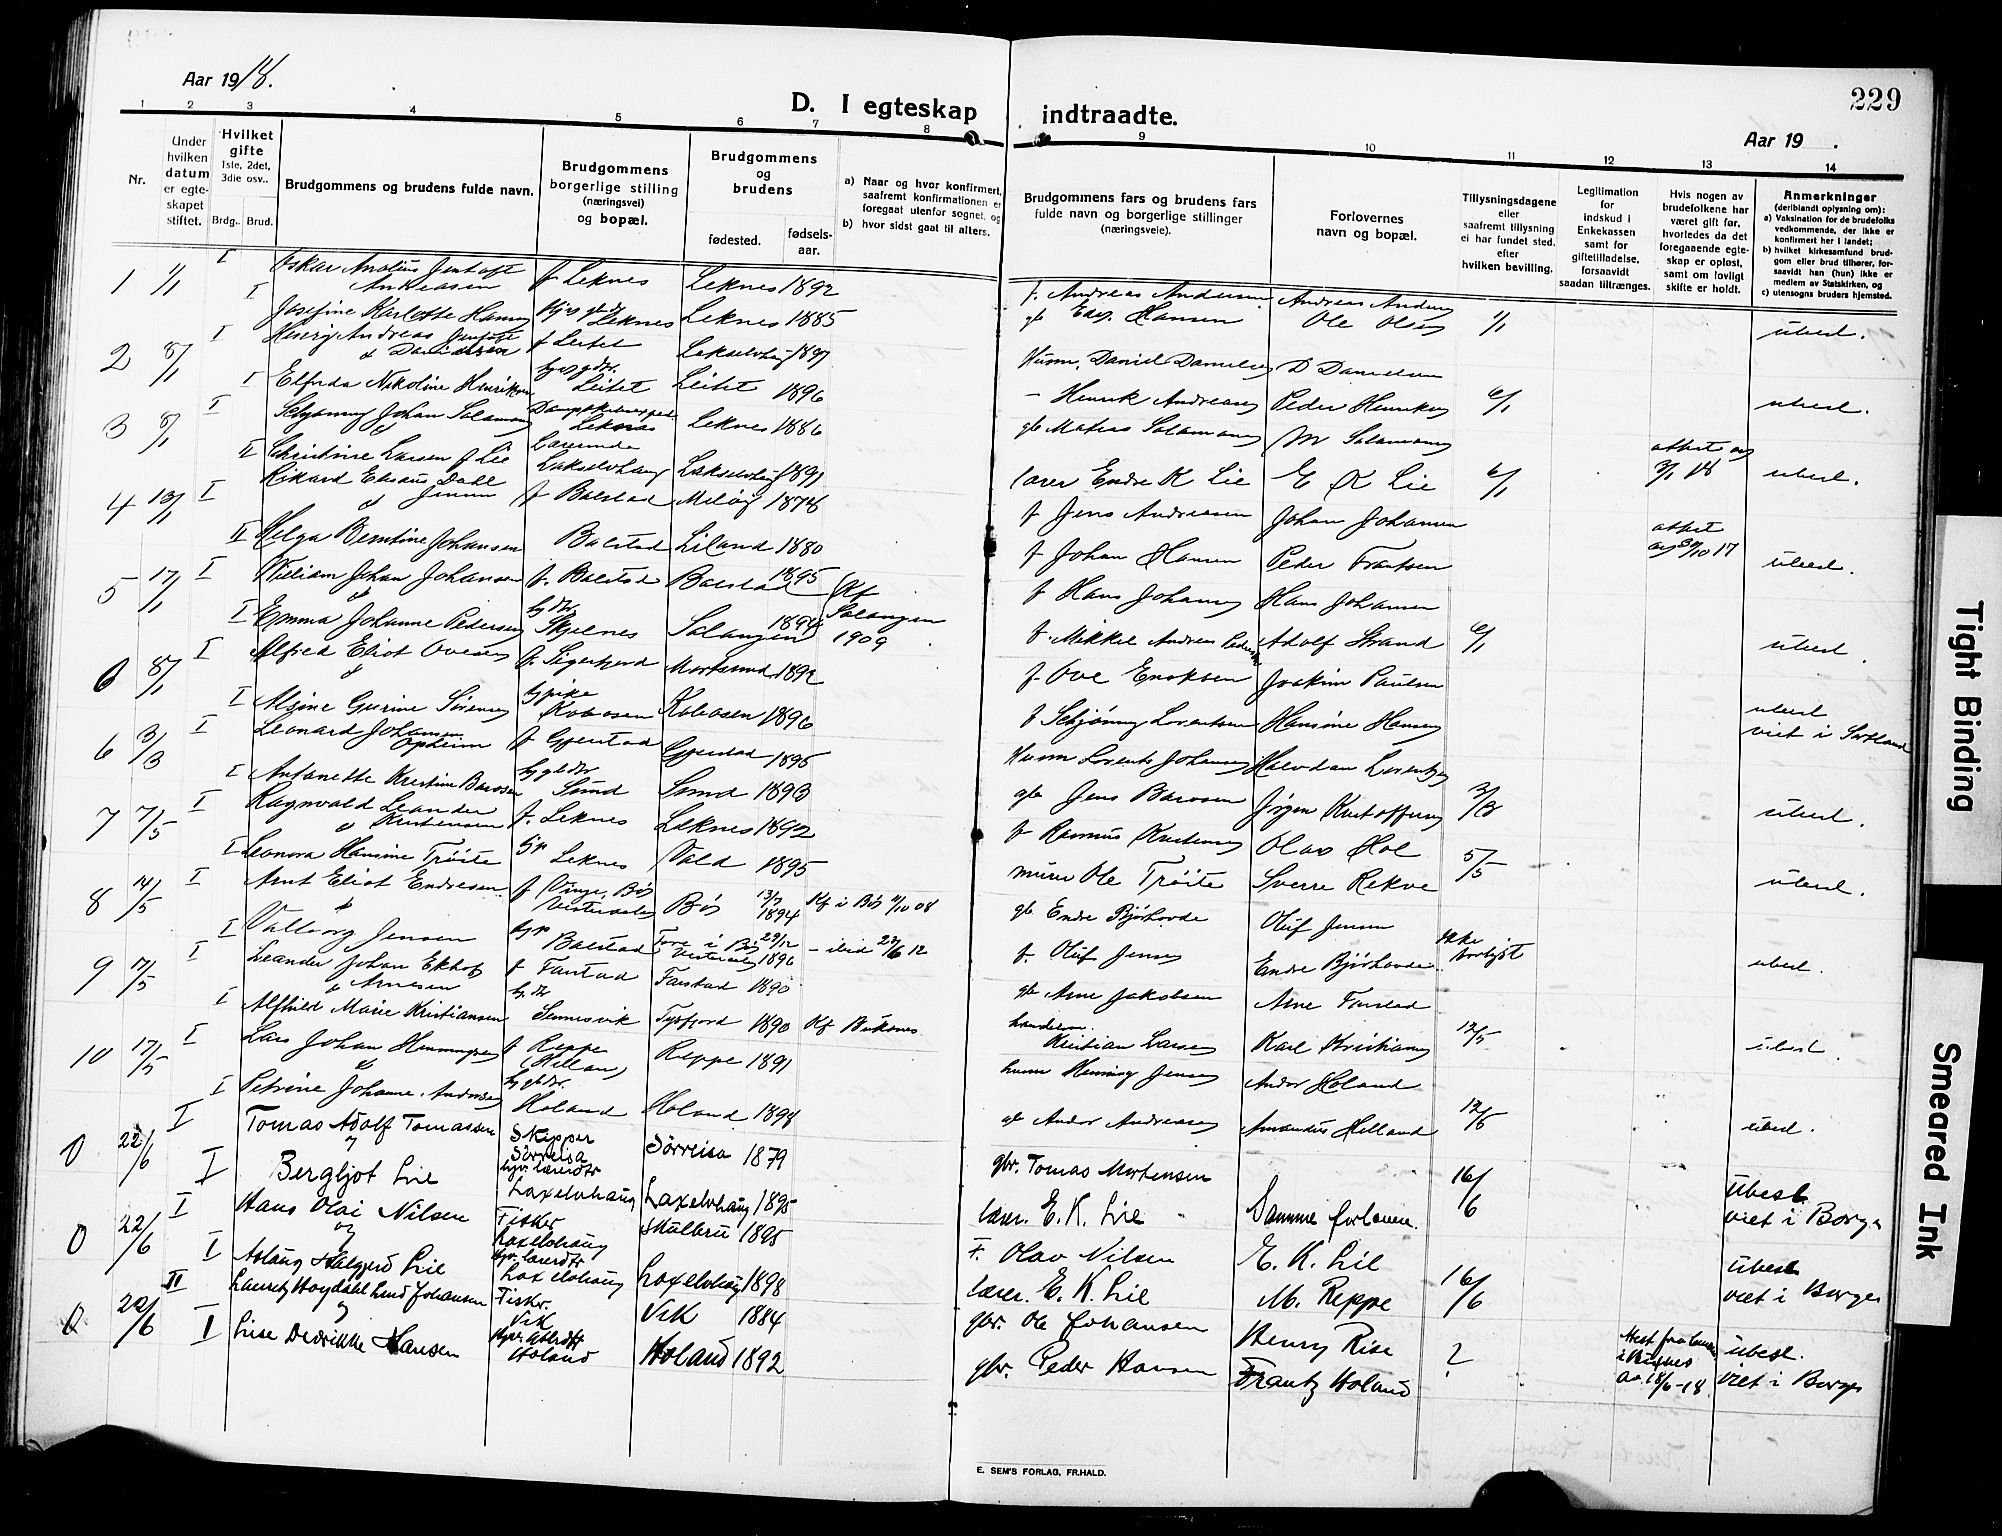 229
Aar 1918.
D. I egteskap indtraadte.
Aar 19 .
1 2 3 4 5 6 7 8 9 10 11 12 13 14
Nr.
Under hvilken datum er egteskapet stiftet.
Hvilket gifte 1ste, 2det, 3die osv..
Brdg.. Brud.
Brudgommens og brudens fulde navn.
Brudgommens borgerlige stilling (næringsvei) og bopæl.
Brudgommens og brudens
fødested. fødselsaar.
a) Naar og hvor konfirmert, saafremt konfirmationen er foregaat utenfor sognet, og
b) hvor sidst gaat til alters.
Brudgommens fars og brudens fars fulde navn og borgerlige stillinger (næringsveie).
Forlovernes navn og bopæl.
Tillysningsdagene eller saafremt tillysning ei har fundet sted. efter hvilken bevilling.
Legitimation for indskud i Enkekassen samt for giftetilladelse, forsaavidt saadan tiltrænges.
Hvis nogen av brudefolkene har været gift før, hvorledes da det foregaaende egteskap er opløst, samt om lovligt skifte er holdt.
Anmerkninger (deriblandt oplysning om):
a) Vaksination for de brudefolks vedkommende, der ikke er konfirmert her i landet;
b) hvilket kirkesamfund brudgom eller brud tilhører, forsaavidt han (hun) ikke er medlem av Statskirken, og
c) utensogns bruders hjemsted.
1 1/1 I Oskar Anolius Jentoft Andreasen f Leknes Leknes 1892 f. Andreas Andersen
I Josefine Karlotte Leknes Leknes 1885 Hansen Ole Olsen 1/1 ubesl.
2 8/1 I Andreas Jentoft Danielsen f Leitet 1891 Husm. Daniel D Danielsen
I Elfrida Nikoline Henriksen Leitet Leitet 1896 – Henrik Andreasen Peder Henriksen 6/1 ubesl.
3 8/1 I Johan Leknes Leknes 1886 gb Matias
II Christine Larsen f Lie Lærerinde Lakselvhaug Lakselvhaug 1891 lærer Endre K Lie E K Lie 6/1 attest av 3/1 18 ubesl.
4 13/1 I Rikard Elesæus Dahl Jensen f Balstad Meløy 1878 f Jens Andreasen Johan Johansen
II Helga Berntine Johansen Balstad Liland 1880 f Johan Hansen Peder attest av 30/10 17 ubesl.
5 17/1 I William Johan Johansen f. Balstad Balstad 1895 f Hans Johansen Hans Johansen
I Emma Johanne Pedersen Skjelnes Salangen 1894 Kf Salangen 1909 f. Mikkel Andreas Pedersen Adolf Strand 6/1 ubesl.
0 8/1 I Alfred Eliot Ovesen f. Sigerfjord Mortsund 1892 f Ove Eriksen Joakim Paulsen
I Gurine Sørensen 1896 f Schjønning Lorentsen Hansine Hansen ubesl viet i Sortland
6 3/3 I Leonard Johansen Opheim f Gjerstad Gjerstad 1895 Husm Lorents Johansen Halvdan Lorentsen
I Antonette Kristine Sund Sund 1893 gb Jens Jørgen Kristoffersen 3/3 ubesl.
7 7/5 I Ragnvald Leander Kristensen f. Leknes Leknes 1892 f Rasmus Kristensen Olav Hol
I Leonora Hansine Trøite Leknes Vald 1895 murer Ole Trøite Sverre Rekve 5/5 ubesl.
8 14/5 I Arnt Eliot Endresen f Vinje, Bø Vesteraalen Bø 13/3 1894 Kf i Bø 4/10 08 gb Endre Bjørhovde Oluf Jensen
I Valborg Jensen Balstad i Bø Vesteraalen 29/12 1896 – ibid 23/6 12 f. Oluf Jensen Endre Bjørhovde ikke ubesl.
9 17/5 I Leander Johan Arnesen f Farstad Farstad 1890 gb Arne Jakobsen Arne Farstad
I Alfhild Marie Kristiansen Sennesvik Tysfjord 1890 Kf Buksnes Kristian Larsen Karl Kristiansen 12/5 ubesl.
10 17/5 I Lars Johan Henningsen f Reppe Reppe 1891 husm Henning Jensen Andor Holand
I Petrine Johanne Andorsen Holand Holand 1898 gb Andor Andreasen Amandus Helland 12/5 ubesl.
0 22/6 I Tomas Adolf Tomassen Skipper Sørreisa Sørreisa 1879 gbr. Tomas Mortensen
og
I Bergljot Lie hjv. lærerdtr Laxelvhaug Laxelvhaug 1895 lærer. E. K. Lie Samme forlovere. 16/6 ubesl. viet i Borge
0 22/6 I Hans Olai Nilsen Fisker Laxelvhaug Skulbru 1895 F. Olav Nilsen E. K. Lie
og
I Aslaug Halgjerd Lie hjv. lærerdtr Laxelvhaug Laxelvhaug 1898 lærer. E. K. Lie M. Reppe 16/6 ubesl viet i Borge
0 22/6 II Lauritz Hoydahl Lund Johansen Fisker. Vik Vik 1884 gbr. Ole Johansen Henry Rise
og
I Lise Dedrikke Hansen Holand Holand 1892 gbr. Peder Hansen Frantz Holand ? i Buksnes 18/6-18. ubesl. viet i Borge
E. SEM'S FORLAG, FR.HALD.
Tight Binding
Smeared Ink